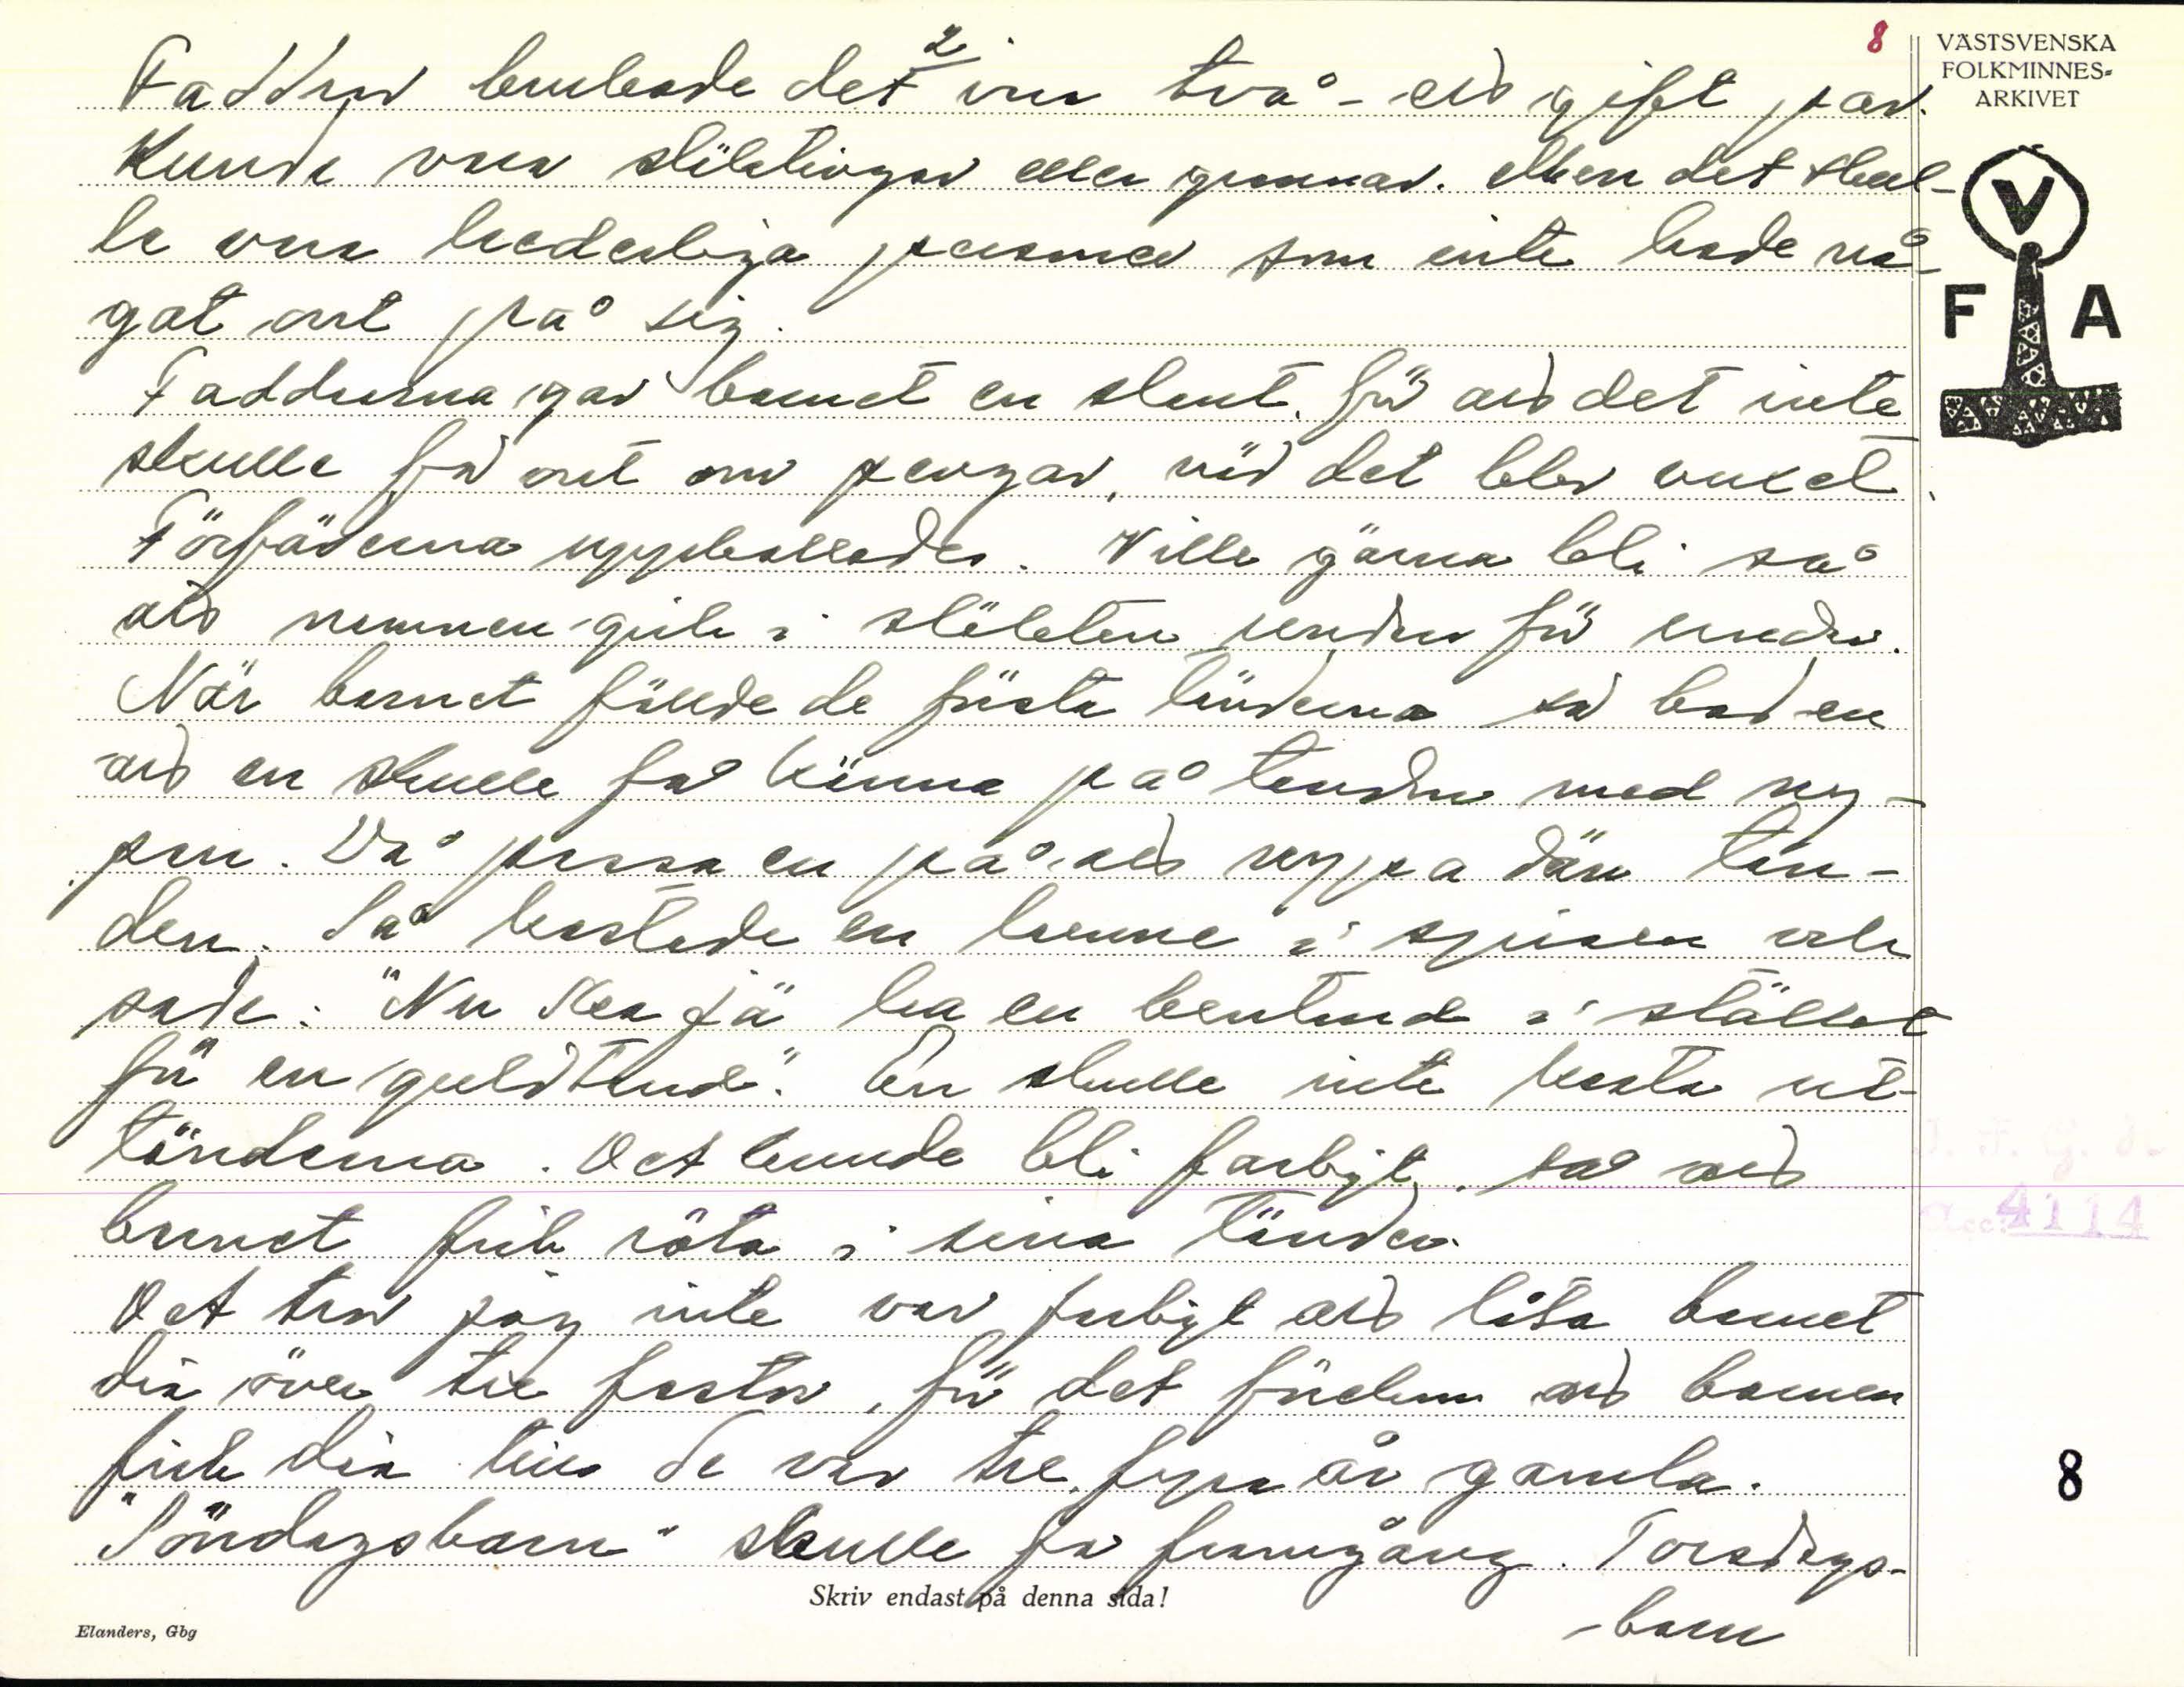 8
VÄSTSVENSKA
FOLKMINNES-
ARKIVET
V
F A
2
Faddrar brukade det vara två - ett gift par.
Kunde vara släktingar eller grannar. Men det skul-
le vara hederliga personer som inte hade nå-
got ont på sig.
Faddrarna gav barnet en slant, för att det inte
skulle få ont om pengar, när det blev vuxet.
Förfäderna uppkallades. Ville gärna bli så
att namnen gick i släkten undan för undan.
När barnet fällde de första tänderna så bad en
att en skulle få känna på tanden med ny-
pan. Då passa en på att nyppa dän tan-
den. Så kastade en henne i spisen och
sade: "Nu ska jä ha en bentand i stället
för en guldtand". En skulle inte kasta ut
tänderna. Det kunde bli farligt, så att
barnet fick röta i sina tänder.
Det tror jag inte var farligt att låta barnet
dia över tre fastor, för det förekom att barnen
fick dia tills de var tre, fyra år gamla.
"Söndagsbarn" skulle få framgång. Torsdags-
-barn
Acc: 4114
8
Skriv endast på denna sida!
Elanders, Gbg